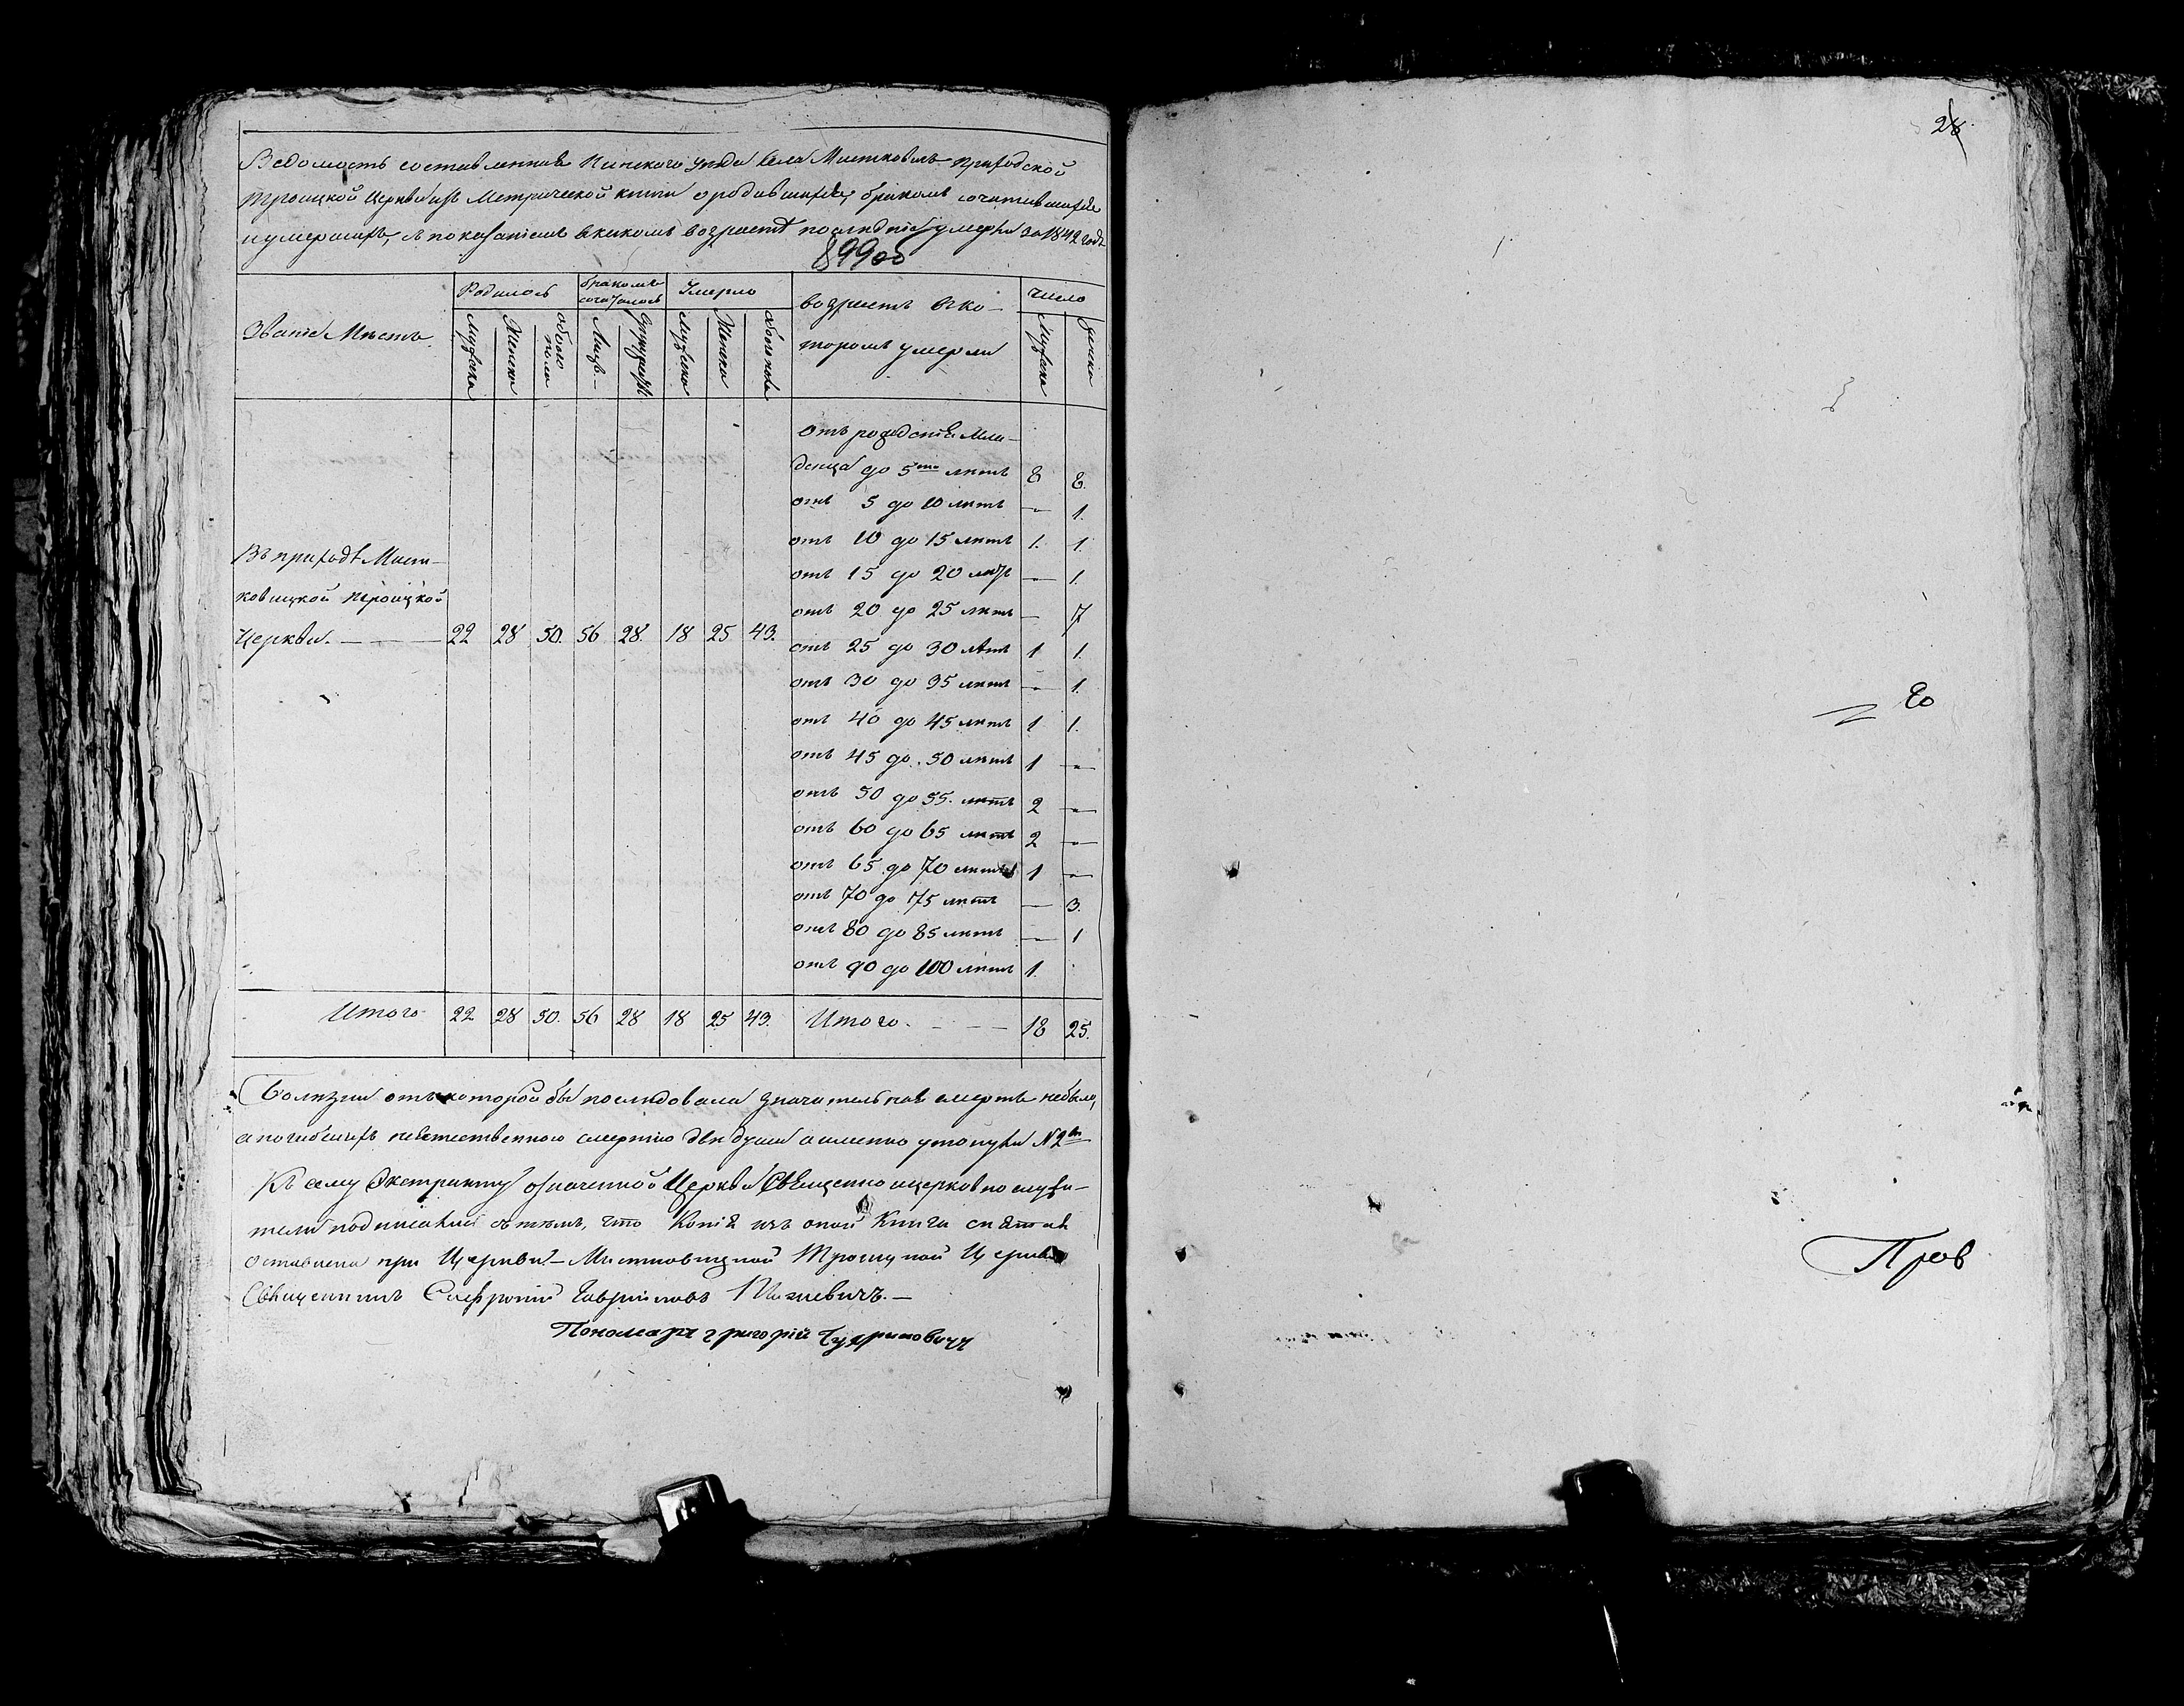 Ведомость составленная Пинского уѣзда села Мистковичъ Приходской
Троицкой Церкви изъ Метрической книги о родившихся, бракомъ сочетавшихся
и умершихъ, съ показаніемъ въ какомъ возрастѣ послѣдніе умерли за 1842 годъ
899об
Званіе Мѣстъ.
Родилось
Мужеска
Женска
обоего пола
бракомъ сочеталось
Лицъ
Супружествъ
Умерло
Мужеска
Женска
обоего пола
возрастъ въ ко-
торомъ умерли
число
Мужеска
женска
Отъ рождества Мла-
денца до 5ти лѣтъ 8 8.
отъ 5 до 10 лѣтъ — 1.
отъ 10 до 15 лѣтъ 1. 1.
отъ 15 до 20 лѣтъ — 1.
отъ 20 до 25 лѣтъ — 7
отъ 25 до 30 лѣтъ 1 1.
отъ 30 до 35 лѣтъ — 1.
отъ 40 до 45 лѣтъ 1 1.
отъ 45 до 50 лѣтъ 1 —
отъ 50 до 55 лѣтъ 2 —
отъ 60 до 65 лѣтъ 2 —
отъ 65 до 70 лѣтъ 1 —
отъ 70 до 75 лѣтъ — 3.
отъ 80 до 85 лѣтъ — 1
отъ 90 до 100 лѣтъ 1.
Въ приходѣ Мист-
ковицкой Троицкой
Церкви. — 22 28 50. 56 28. 18 25 43.
Итого 22 28 50. 56 28 18 25 43. Итого. — 18 25.
Болѣзни отъ которой бы послѣдовала значительная смерть небыло,
а погибшихъ неестественною смертію двѣ души а именно утонули N 2
Къ сему Экстракту означенной Церкви Священно и церковно служи-
тели подписались съ тѣмъ, что Копія изъ оной Книги снятая
оставлена при Церкви — Мистковицкой Троицкой Церкви
Священникъ Софроній Гавриловъ
Пономарь григорій
28
Пров